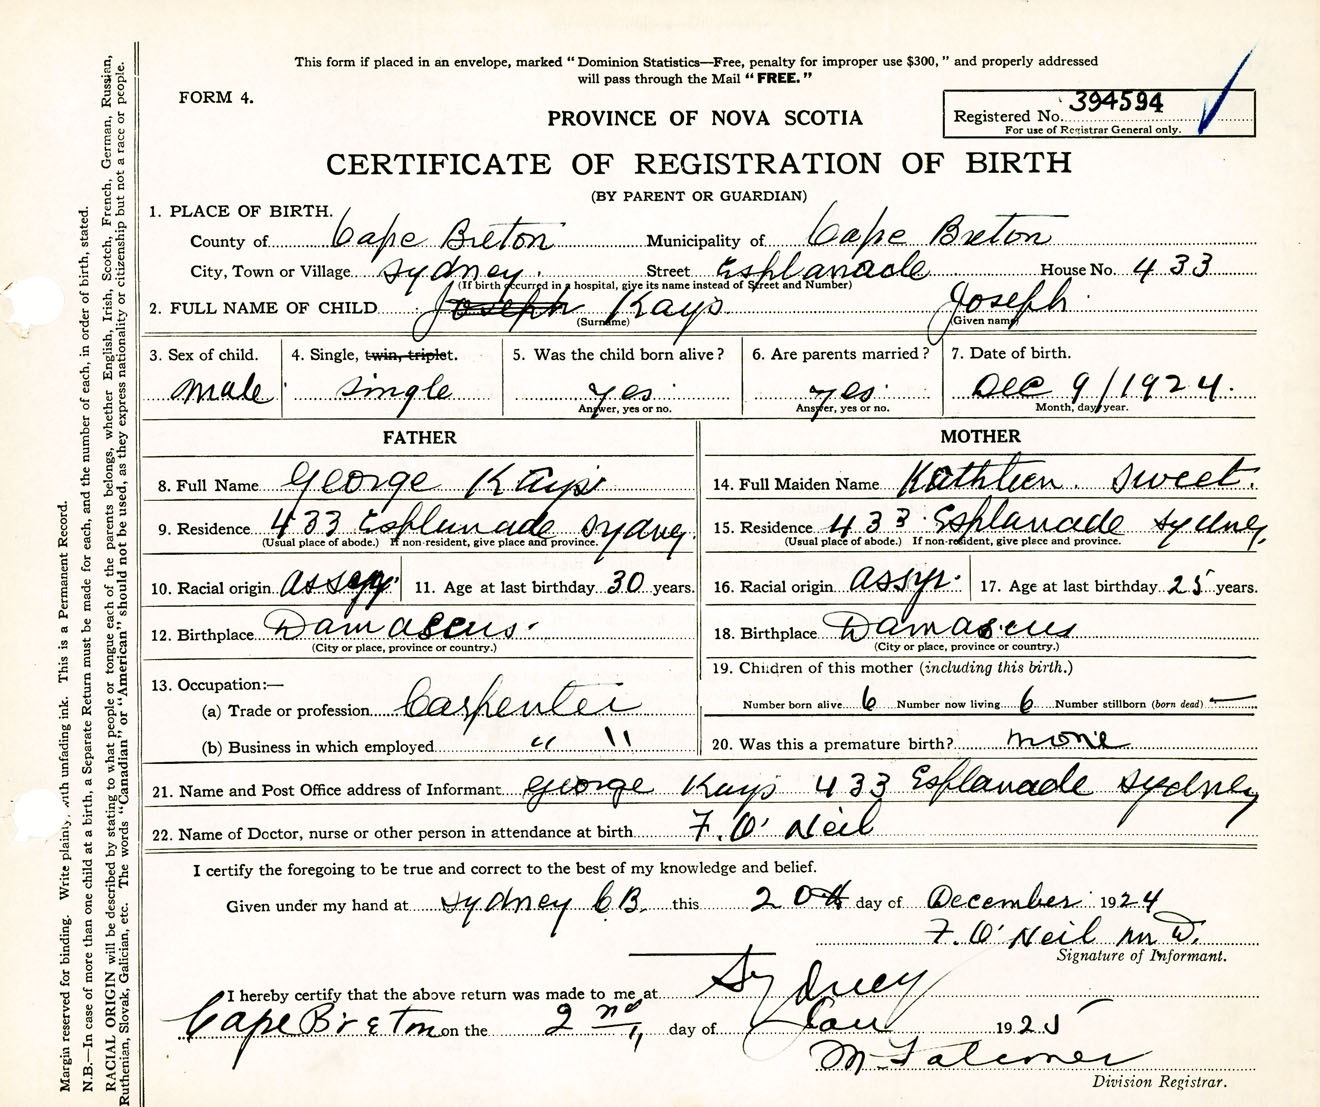 This form if placed in an envelope, marked "Dominion Statistics—Free, penalty for improper use $300," and properly addressed
will pass through the Mail "FREE."
FORM 4.
PROVINCE OF NOVA SCOTIA
Registered No. 394594
For use of Registrar General only.
CERTIFICATE OF REGISTRATION OF BIRTH
(BY PARENT OR GUARDIAN)
1. PLACE OF BIRTH.
County of Cape Breton Municipality of Cape Breton
City, Town or Village Sydney. Street Esplanade House No. 433
(If birth occurred in a hospital, give its name instead of Street and Number)
2. FULL NAME OF CHILD Joseph Kays Joseph
(Surname) (Given name)
3. Sex of child. 4. Single, twin, triplet. 5. Was the child born alive? 6. Are parents married? 7. Date of birth.
Male single yes yes Dec 9/1924.
Answer, yes or no. Answer, yes or no. Month, day, year.
FATHER MOTHER
8. Full Name George Kays 14. Full Maiden Name Kathleen Sweet.
9. Residence 433 Esplanade Sydney. 15. Residence 433 Esplanade Sydney.
(Usual place of abode.) If non-resident, give place and province. (Usual place of abode.) If non-resident, give place and province.
10. Racial origin Assyr. 11. Age at last birthday 30 years. 16. Racial origin Assyr. 17. Age at last birthday 25 years.
12. Birthplace Damascus. 18. Birthplace Damascus
(City or place, province or country.) (City or place, province or country.)
13. Occupation:— 19. Children of this mother (including this birth.)
(a) Trade or profession Carpenter Number born alive 6 Number now living 6 Number stillborn (born dead) —
(b) Business in which employed " " 20. Was this a premature birth? none
21. Name and Post Office address of Informant George Kays 433 Esplanade Sydney
22. Name of Doctor, nurse or other person in attendance at birth F. O'Neil
I certify the foregoing to be true and correct to the best of my knowledge and belief.
Given under my hand at Sydney C.B. this 20th day of December 1924
F. O'Neil M.D.
Signature of Informant.
I hereby certify that the above return was made to me at Sydney
Cape Breton on the 2nd day of Jan 1925
Division Registrar.
Margin reserved for binding. Write plainly, with unfading ink. This is a Permanent Record.
N.B.—In case of more than one child at a birth, a Separate Return must be made for each, and the number of each, in order of birth, stated.
RACIAL ORIGIN will be described by stating to what people or tongue each of the parents belongs, whether English, Irish, Scotch, French, German, Russian,
Ruthenian, Slovak, Galician, etc. The words "Canadian" or "American" should not be used, as they express nationality or citizenship but not a race or people.